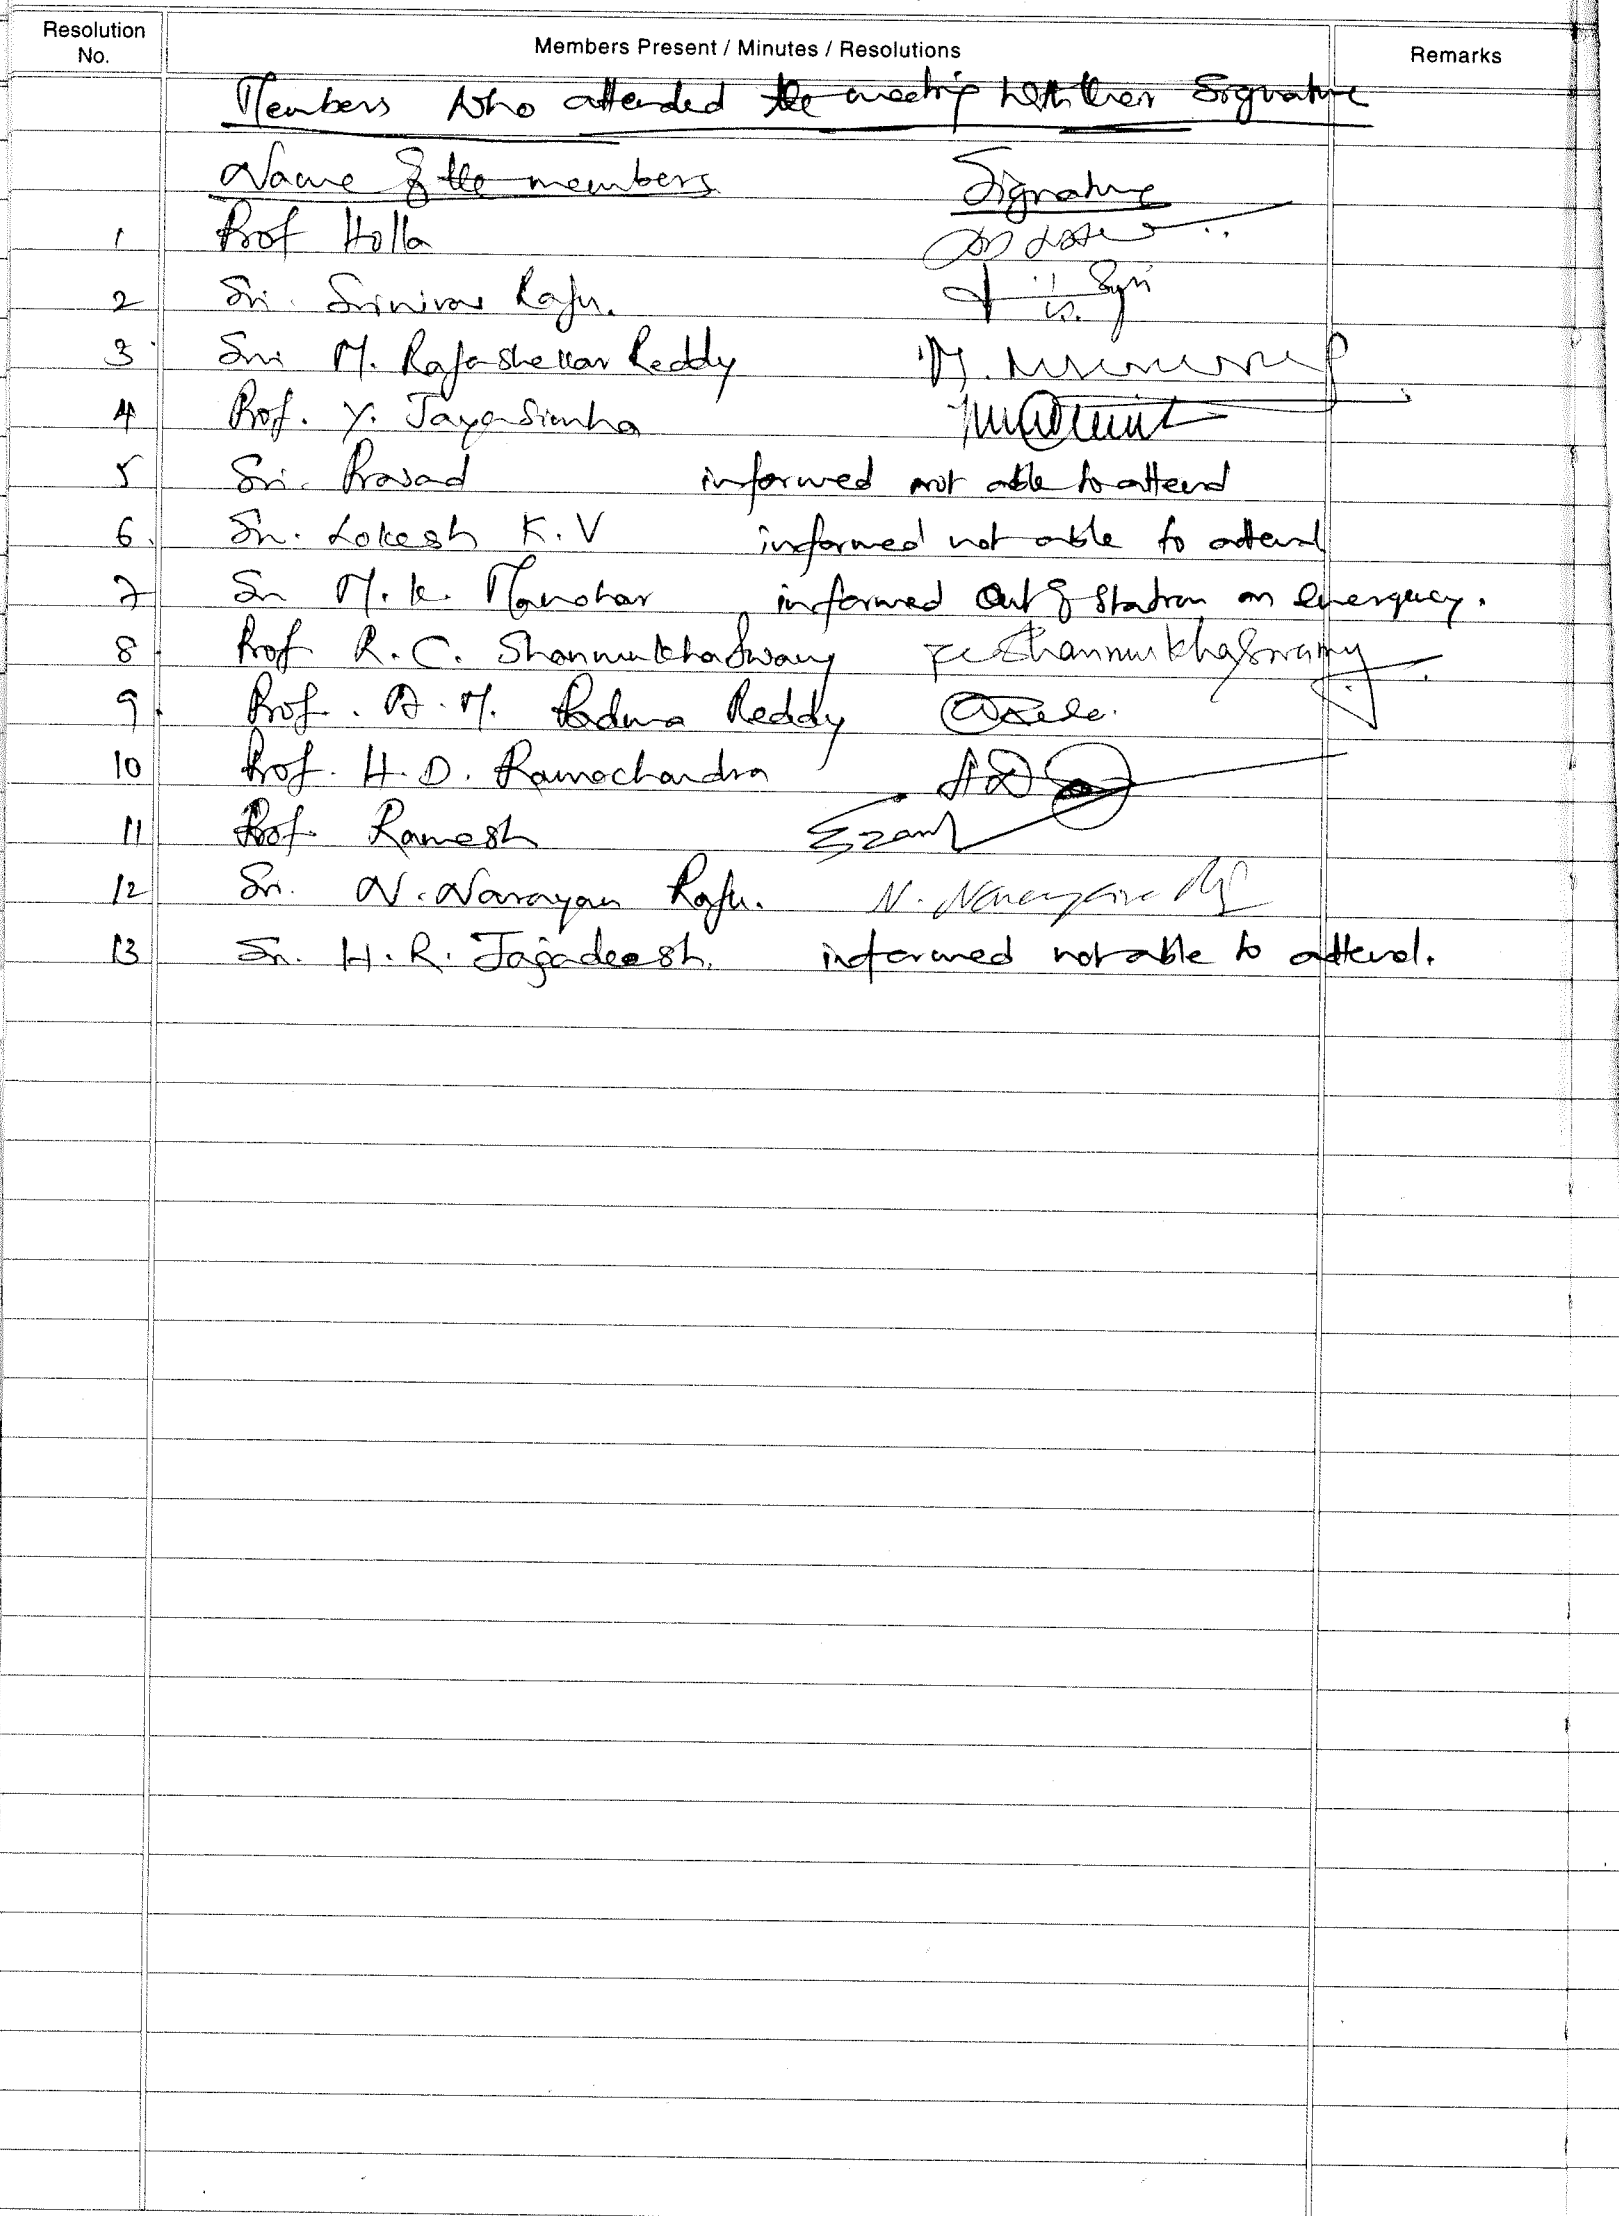 Resolution No. Members Present / Minutes / Resolutions Remarks
Members who attended the meeting with their Signature
Name of the members Signature
1 Prof Holla
2 Sri. Srinivas Raju.
3 Sri M. Rajashekar Reddy
4 Prof. Y. Jayasimha
5 Sri. Prasad informed not able to attend
6. Sri. Lokesh K.V informed not able to attend
7 Sri M.K. Manohar informed Out of Station on emergency.
8 Prof R.C. ShanmukhaSwamy ShanmukhaSwamy
9 Prof. A.M. Padma Reddy
10 Prof. H.D. Ramachandra
11 Prof. Ramesh
12 Sri. N. Narayan Raju. N.
13 Sri. H.R. Jagadeesh. informed not able to attend.